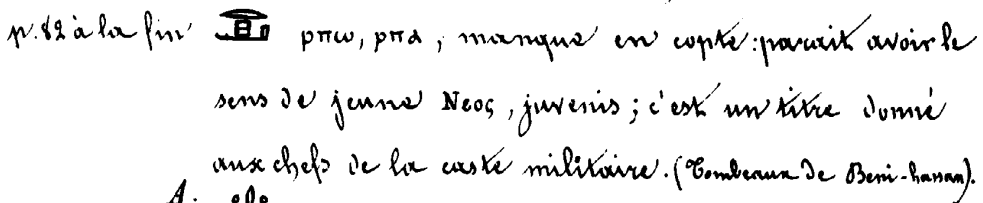 p. 82 à la fin ρπω, ρπα, manque en copte: parait avoir le
sens de jeune Νεος, juvenis; c'est un titre donné
aux chefs de la caste militaire. (Tombeaux de Beni-hassan).